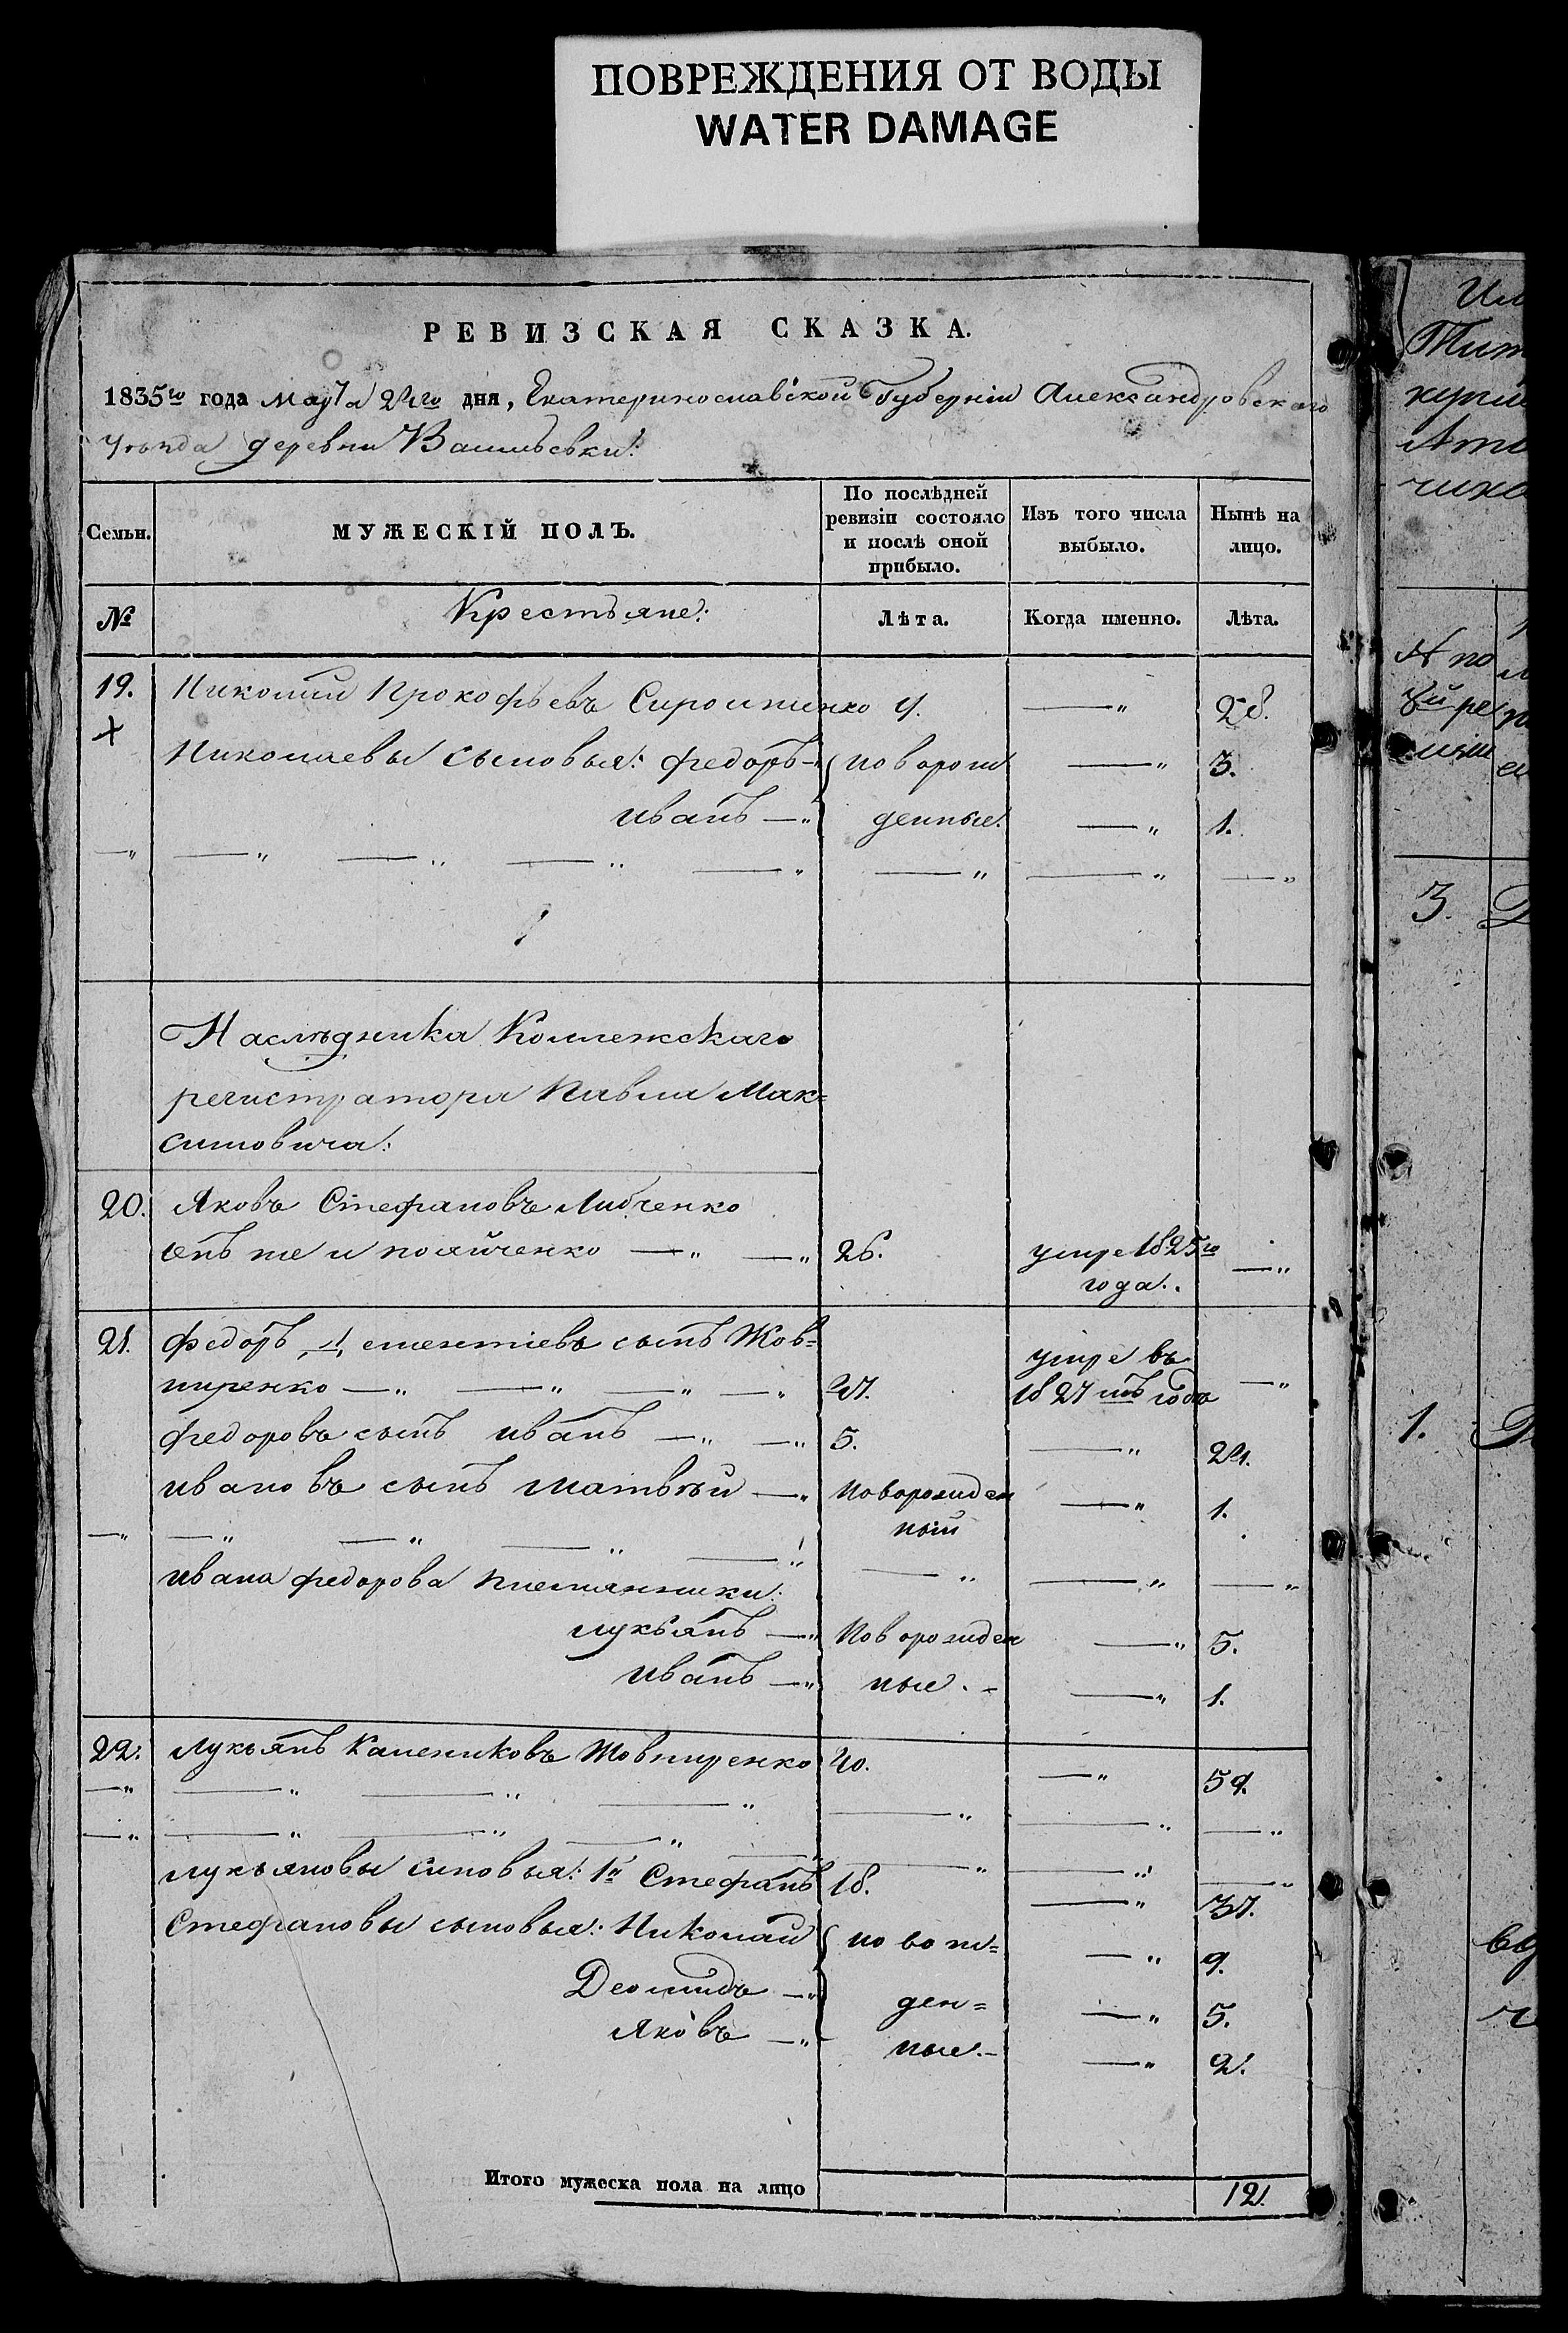 ПОВРЕЖДЕНИЯ ОТ ВОДЫ
WATER DAMAGE
РЕВИЗСКАЯ СКАЗКА.
1835го года Марта дня, Екатеринославской Губерніи Александровскаго
уѣзда деревни Васильевки:
Семьи. МУЖЕСКІЙ ПОЛЪ. По послѣдней ревизіи состояло и послѣ оной прибыло. Изъ того числа выбыло. Нынѣ на лицо.
№ Крестьяне: Лѣта. Когда именно. Лѣта.
19. Николай Прокофьевъ Сиротенко 9. —„ 28.
Николаевы сыновья: Федоръ —„ новорож —„ 3.
Иванъ —„ денные. —„ 1.
Наслѣдника Коллежскаго
регистратора Павла Мак=
симовича:
20. Яковъ Стефановъ Либченко
онъ же и —„ —„ 26. умре 1825го —„
года.
21. Федоръ сынъ Жов= умре въ
ниренко —„ —„ —„ —„ 1827мъ годѣ —„
Федоровъ сынъ Иванъ —„ —„ 5. —„
Ивановъ сынъ Матвѣй —„ Новорожден —„ 1.
ный
Ивана Федорова племянники:
Лукьянъ —„ Новорожден —„ 5.
Иванъ —„ ные. —„ 1.
22. Лукьянъ Жовниренко 40. —„ 59.
Лукьяновы синовья: 1й Стефанъ 18. —„ 37.
Стефановы сыновья: Николай новож= —„ 9.
Деомидъ —„ ден= —„ 5.
Яковъ —„ ные.— —„ 2.
Итого мужеска пола на лицо 12.
3.
1.